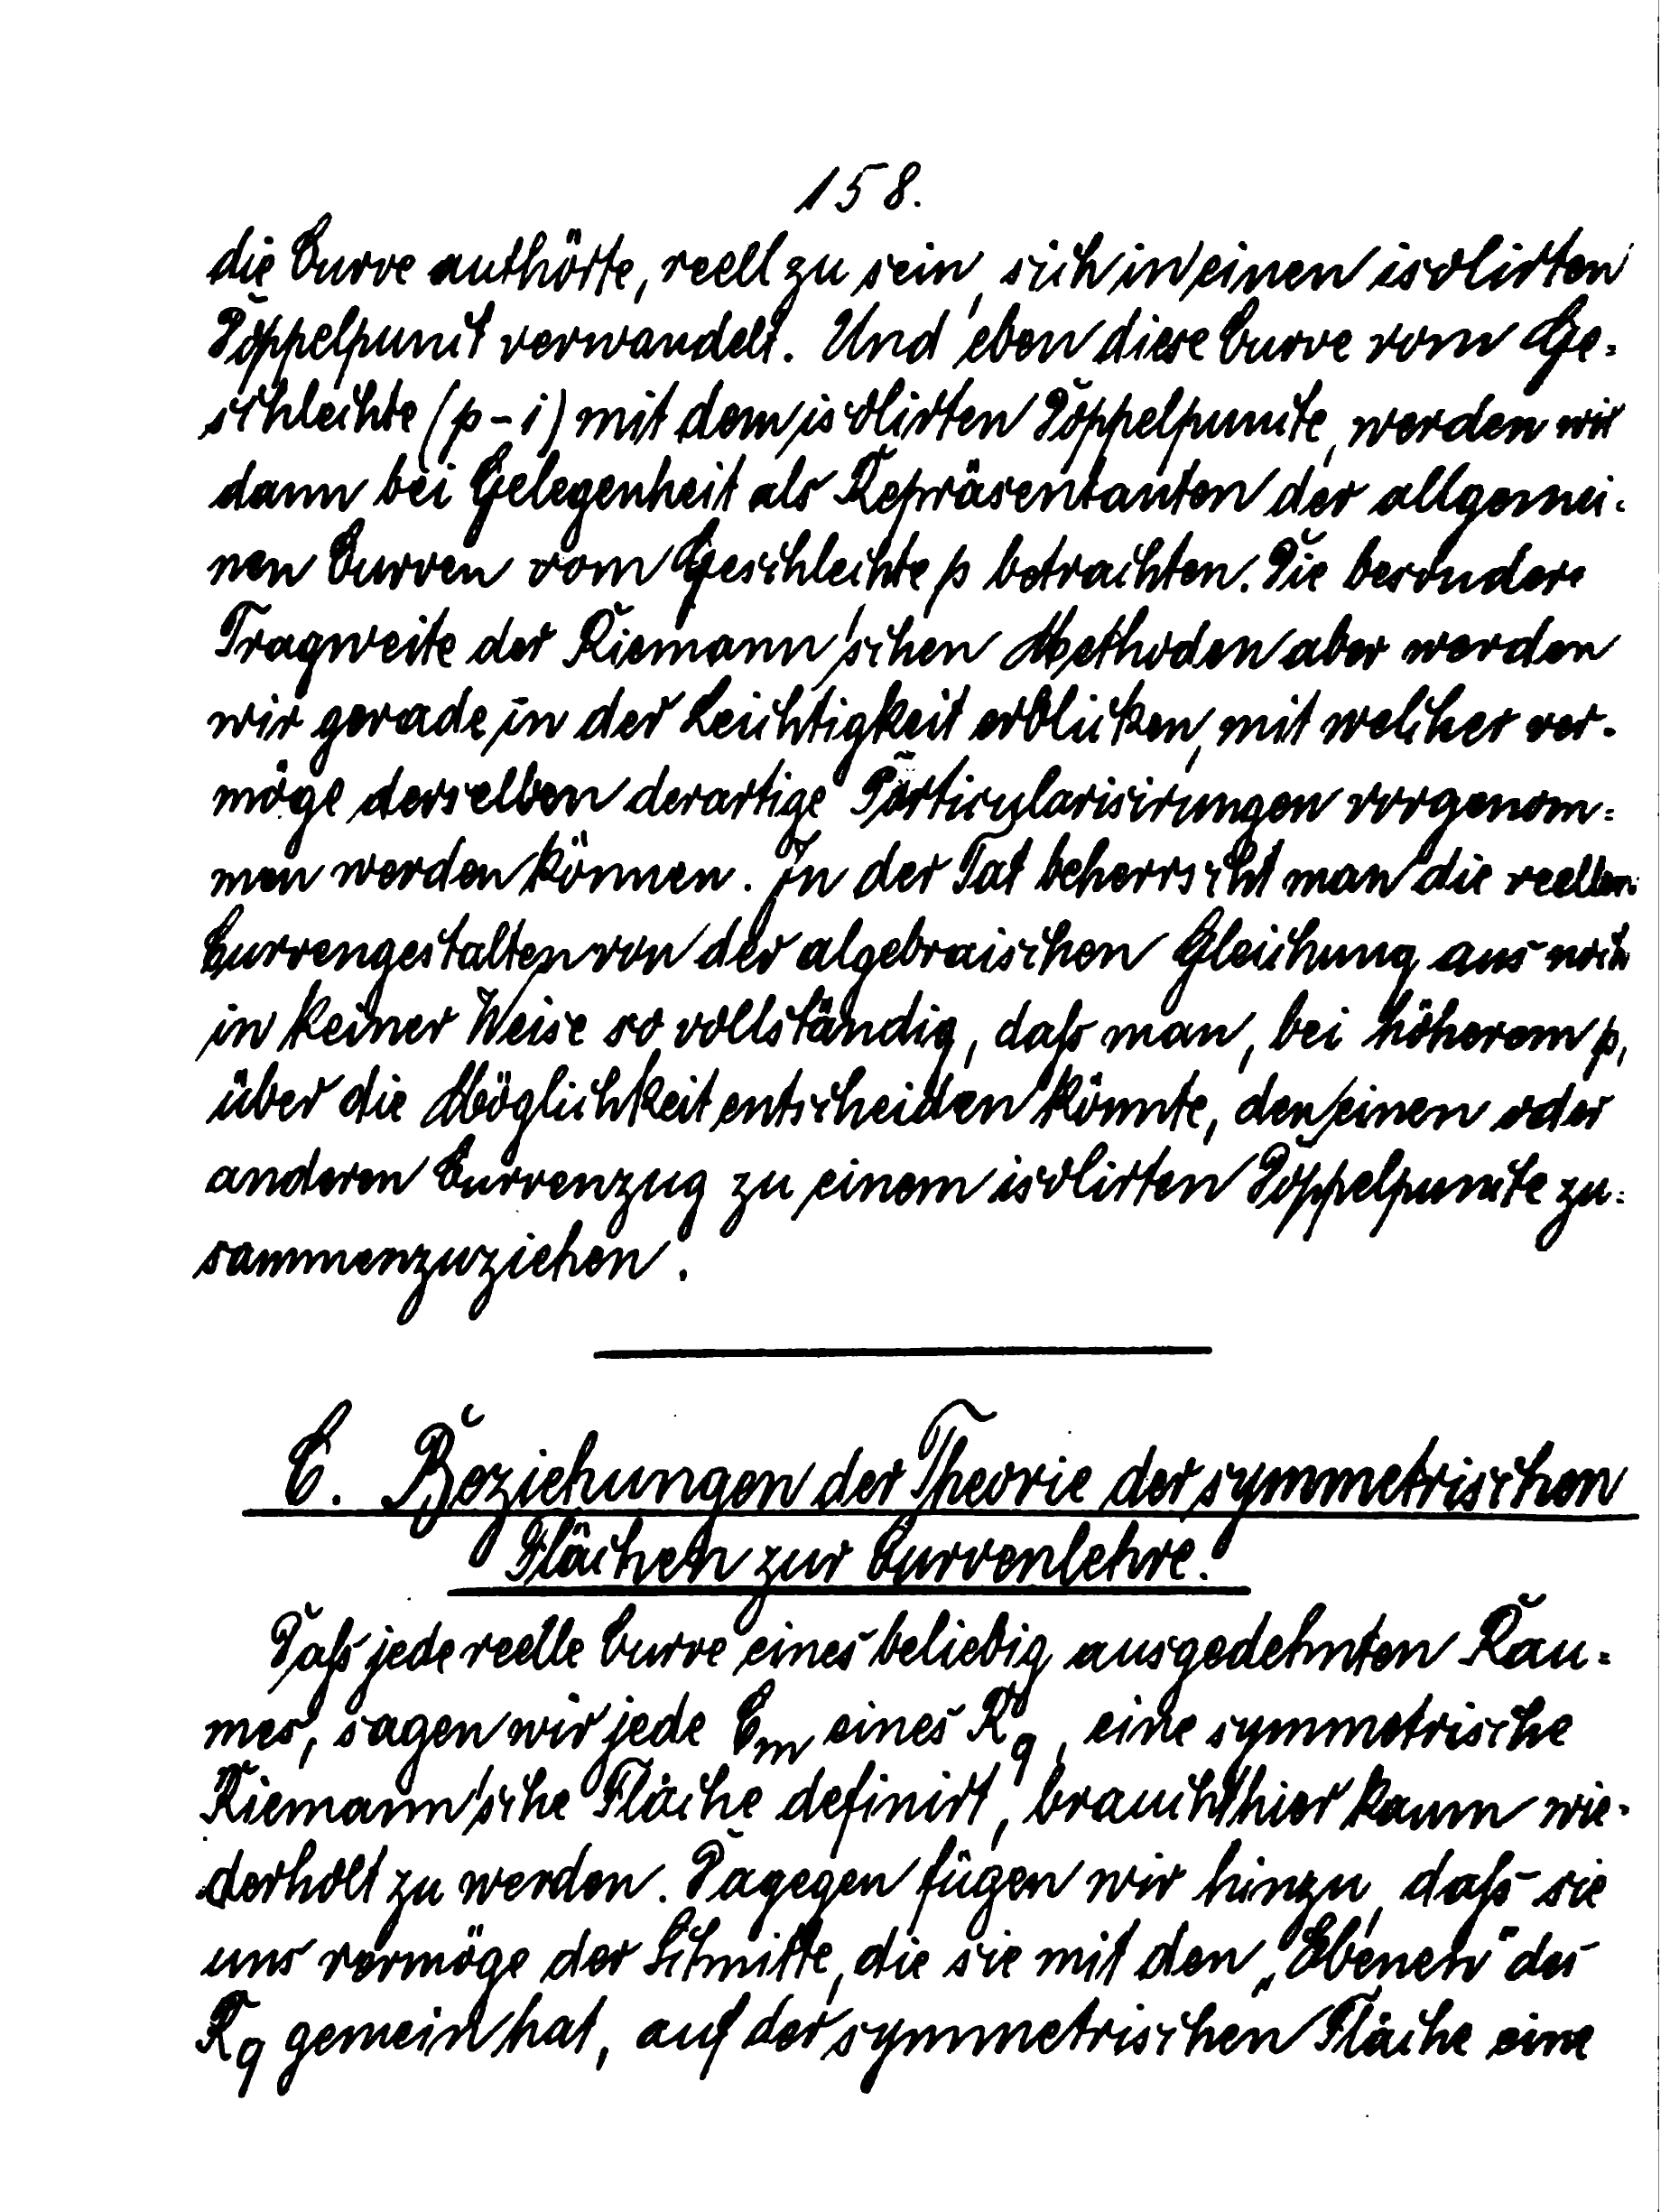 158.
die Curve aufhörte, reell zu sein, sich in einen isolirten
Doppelpunct verwandelt. Und eben diese Curve vom Ge-
schlechte (p-1) mit dem isolirten Doppelpuncte, werden wir
dann bei Gelegenheit als Repräsentanten der allgemei-
nen Curven vom Geschlechte p betrachten. Die besondere
Tragweite der Riemann'schen Methoden aber werden
wir gerade in der Leichtigkeit erblicken, mit welcher ver-
möge derselben derartige Particularisirungen vorgenom-
men werden können. In der Tat beherrscht man die reellen
Curvengestalten von der algebraischen Gleichung aus noch
in keiner Weise so vollständig, daß man, bei höherem p,
über die Möglichkeit entscheiden könnte, den einen oder
anderen Curvenzug zu einem isolirten Doppelpuncte zu-
sammenzuziehen.
C. Beziehungen der Theorie der symmetrischen
Flächen zur Curvenlehre.
Daß jede reelle Curve eines beliebig ausgedehnten Rau-
mes, sagen wir jede C_m eines R_q, eine symmetrische
Riemann'sche Fläche definirt, braucht hier kaum wie-
derholt zu werden. Dagegen fügen wir hinzu, daß sie
uns vermöge der Schnitte, die sie mit den „Ebenen" des
R_q gemein hat, auf der symmetrischen Fläche eine